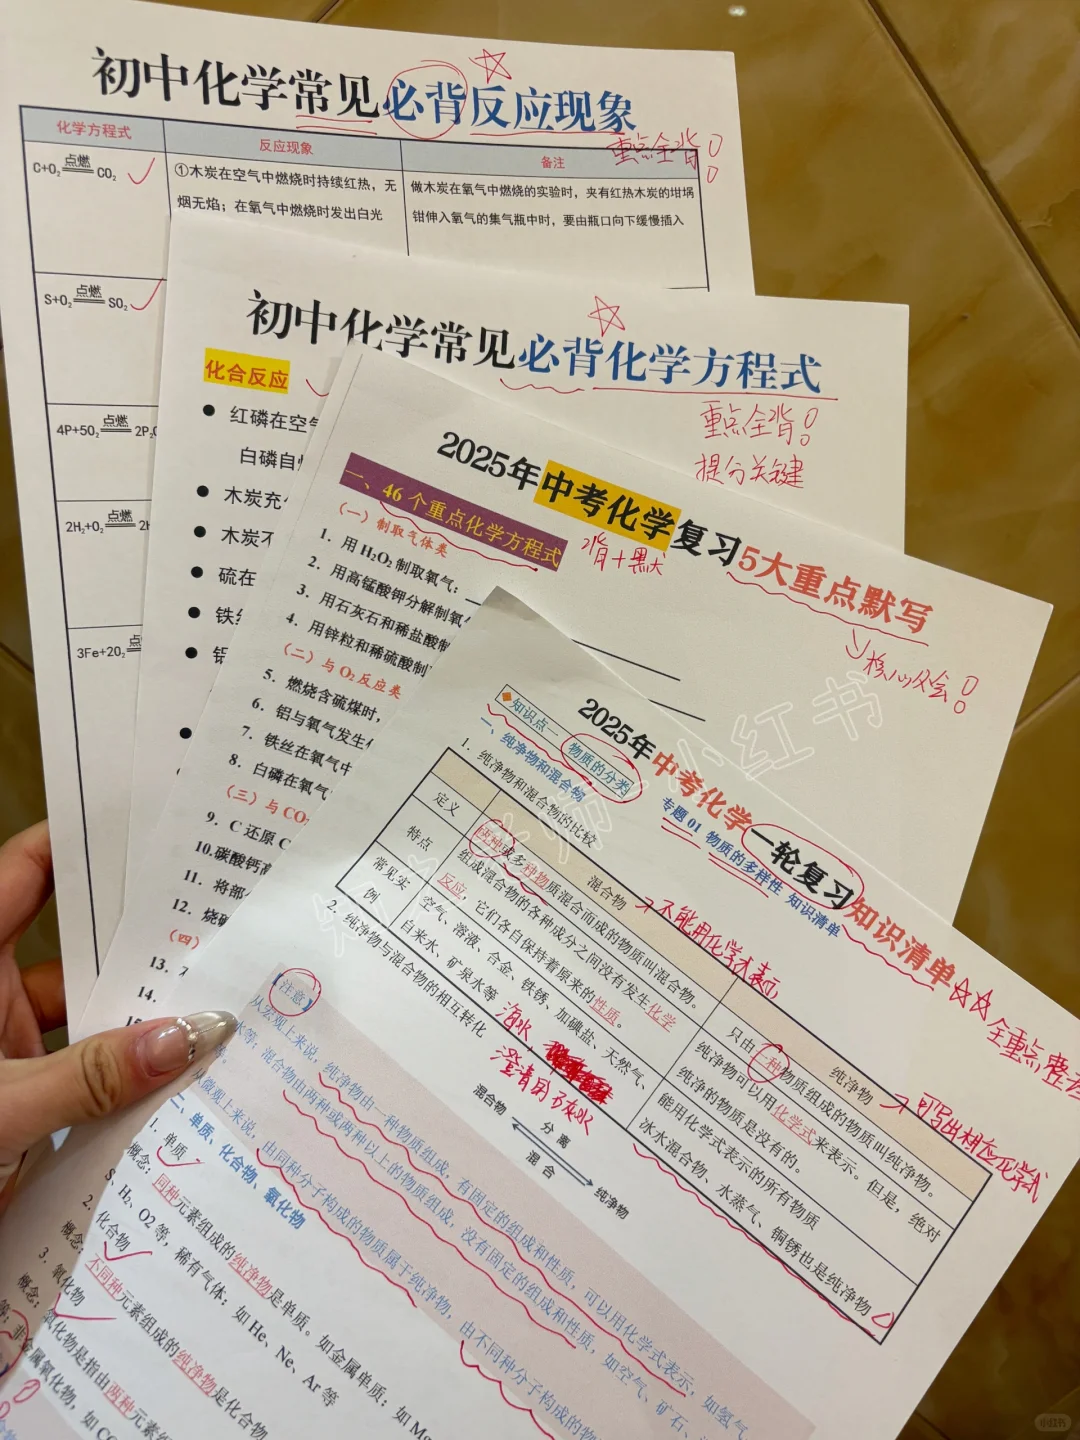 初中化学常见必背反应现象
重点全背!
化学方程式
反应现象
备注
C+O₂ 点燃 CO₂
①木炭在空气中燃烧时持续红热，无
烟无焰；在氧气中燃烧时发出白光
做木炭在氧气中燃烧的实验时，夹有红热木炭的坩埚
钳伸入氧气的集气瓶中时，要由瓶口向下缓慢插入
S+O₂ 点燃 SO₂
4P+5O₂ 点燃 2P₂O
2H₂+O₂ 点燃 2H
3Fe+2O₂
初中化学常见必背化学方程式
重点全背!
提分关键
化合反应
红磷在空气
白磷自燃
木炭充
木炭不
硫在
铁丝
铝
2025年中考化学复习5大重点默写
背+默
核心必会!
一、46个重点化学方程式
（一）制取气体类
1. 用H₂O₂制取氧气：
2. 用高锰酸钾分解制氧
3. 用石灰石和稀盐酸制
4. 用锌粒和稀硫酸制
（二）与O₂反应类
5. 燃烧含硫煤时，
6. 铝与氧气发生
7. 铁丝在氧气中
8. 白磷在氧气
（三）与CO
9. C还原C
10.碳酸钙高
11. 将部
12. 烧碱
（四）
13.
14.
15
2025年中考化学一轮复习知识清单
全重点整
专题01 物质的多样性 知识清单
知识点一 物质的分类
一、纯净物和混合物
1. 纯净物和混合物的比较
混合物
纯净物
定义
两种或多种物质混合而成的物质叫混合物。
只由一种物质组成的物质叫纯净物。
不能用化学式表示
可写出相应化学式
特点
组成混合物的各种成分之间没有发生化学
反应，它们各自保持着原来的性质。
纯净物可以用化学式来表示。但是，绝对
纯净的物质是没有的。
常见实
例
空气、溶液、合金、铁锈、加碘盐、天然气、
自来水、矿泉水等
海水
澄清石灰水
能用化学式表示的所有物质
冰水混合物、水蒸气、铜锈也是纯净物
2. 纯净物与混合物的相互转化
混合物
分离
混合
纯净物
【注意】
从宏观上来说，纯净物由一种物质组成，有固定的组成和性质，可以用化学式表示，如氢气
水等；混合物由两种或两种以上的物质组成，没有固定的组成和性质，如空气、矿石、
等。
从微观上来说，由同种分子构成的物质属于纯净物，由不同种分子构成的物
二、单质、化合物、氧化物
1. 单质
概念：同种元素组成的纯净物是单质。如金属单质：如Mg
S、H₂、O2等，稀有气体：如He、Ne、Ar等
2. 化合物
概念：不同种元素组成的纯净物是化合物
3. 氧化物
概念：氧化物是指由两种元素组
等；非金属氧化物，如CO
知 老师 小红书
小红书